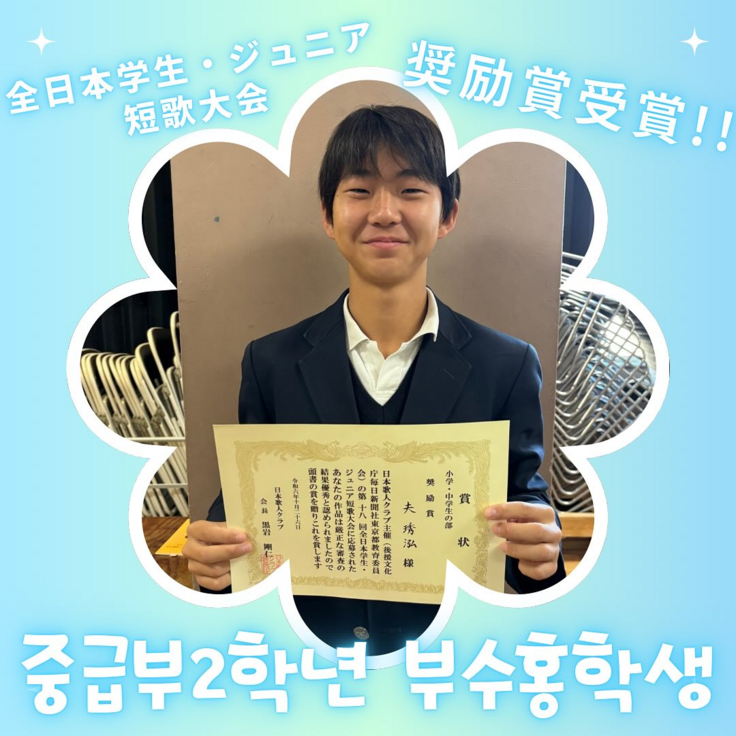 全日本学生・ジュニア
短歌大会
奨励賞受賞!!
賞状
小学・中学生の部
奨励賞
夫琇泓様
日本歌人クラブ主催(後援文化
庁毎日新聞社東京都教育委員
会)の第十八回全日本学生・
ジュニア短歌大会に応募された
あなたの作品は厳正な審査の
結果優秀と認められましたので
頭書の賞を贈りこれを賞します
令和六年十月二十六日
日本歌人クラブ
会長 黒岩剛仁
중급부2학년 부수홍학생